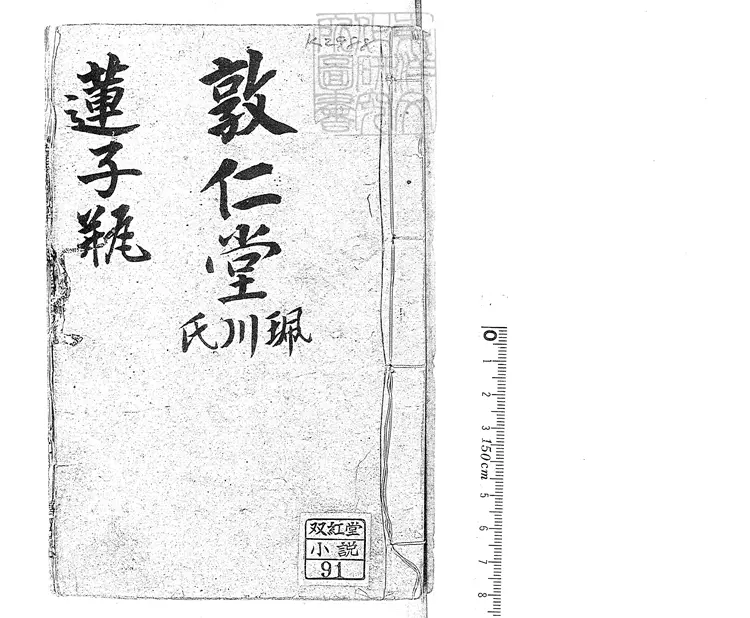 K2988
敦仁堂
珮川氏
蓮子瓶
双紅堂
小説
91
0
1
2
3
150cm
5
6
7
8